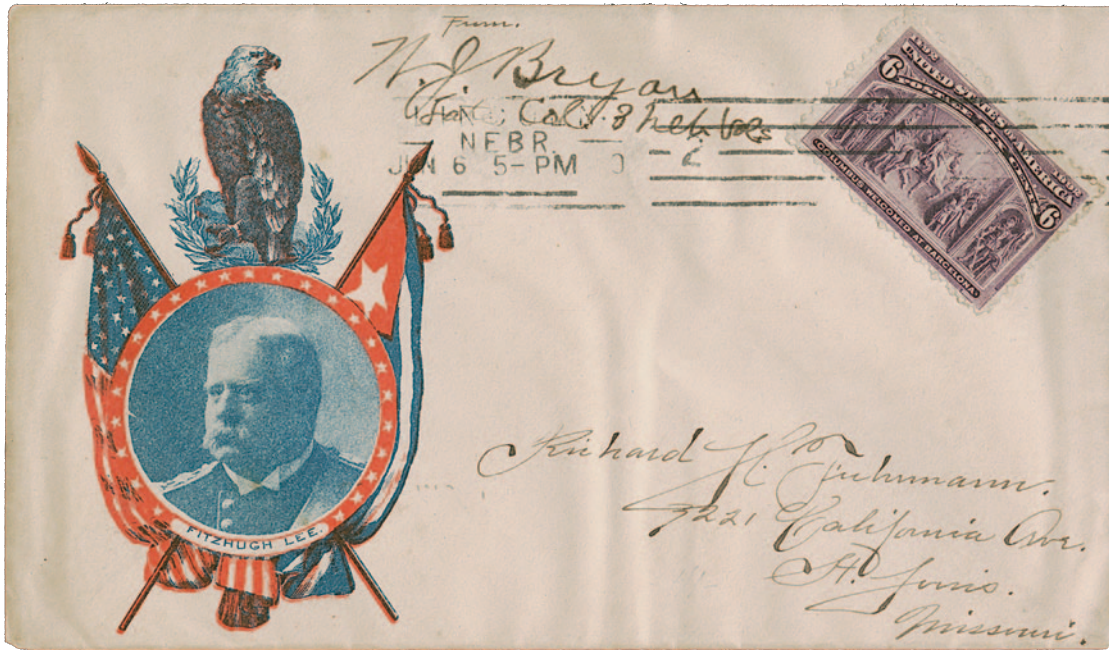 From.
W. J. Bryan
Col. 3 Neb. Vols
NEBR.
JUN 6 5-PM
1492 UNITED STATES OF AMERICA 1892
6 POSTAGE SIX CENTS 6
COLUMBUS WELCOMED AT BARCELONA
FITZHUGH LEE.
Richard H. Fuhrmann.
7221 California Ave.
St. Louis.
Missouri.